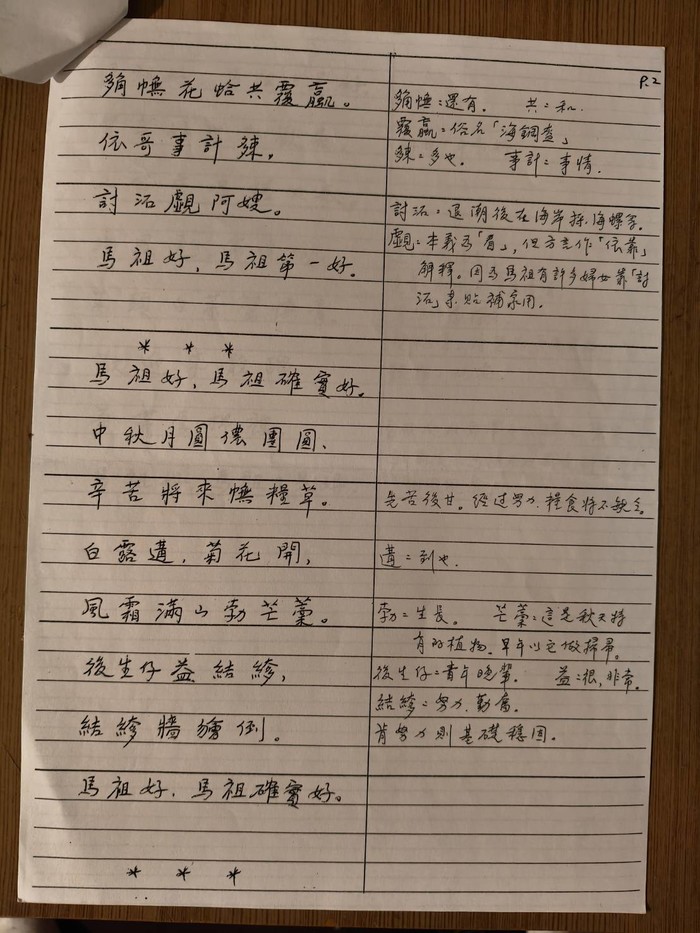 P.2
夠憮花蛤共覆蠃。
依哥事計𡖂,
討沰覷阿嫂。
馬祖好,馬祖第一好。
* * *
馬祖好,馬祖確實好。
中秋月圓儂團圓、
辛苦將來憮糧草。
白露遘,菊花開,
風霜滿山勃芒藁。
後生仔益結縿,
結縿牆獪倒。
馬祖好,馬祖確實好。
* * *
夠憮:還有. 共:和.
覆蠃:俗名「海鋼盔」
多也. 事計:事情.
討沰:退潮後在海岸採海螺等.
覷:本義為「看」,但方言作「依靠」
解釋。因為馬祖有許多婦女靠「討
沰」來貼補家用。
先苦後甘。經过努力,糧食將不缺乏。
遘:到也.
勃:生長。 芒藁:這是秋天特
有的植物。早年以它做掃帚。
後生仔:青年晚輩. 益:很,非常。
結縿:努力.勤奮。
肯努力則基礎穩固。